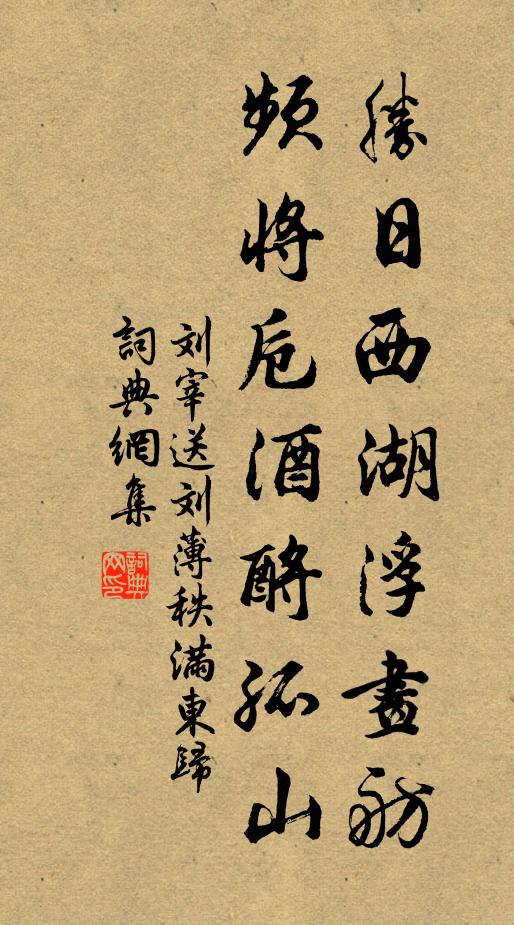 勝日西湖浮畫舫
頻將卮酒酹孤山
刘宰送刘薄秩滿東歸
詞典網集
詞典网印